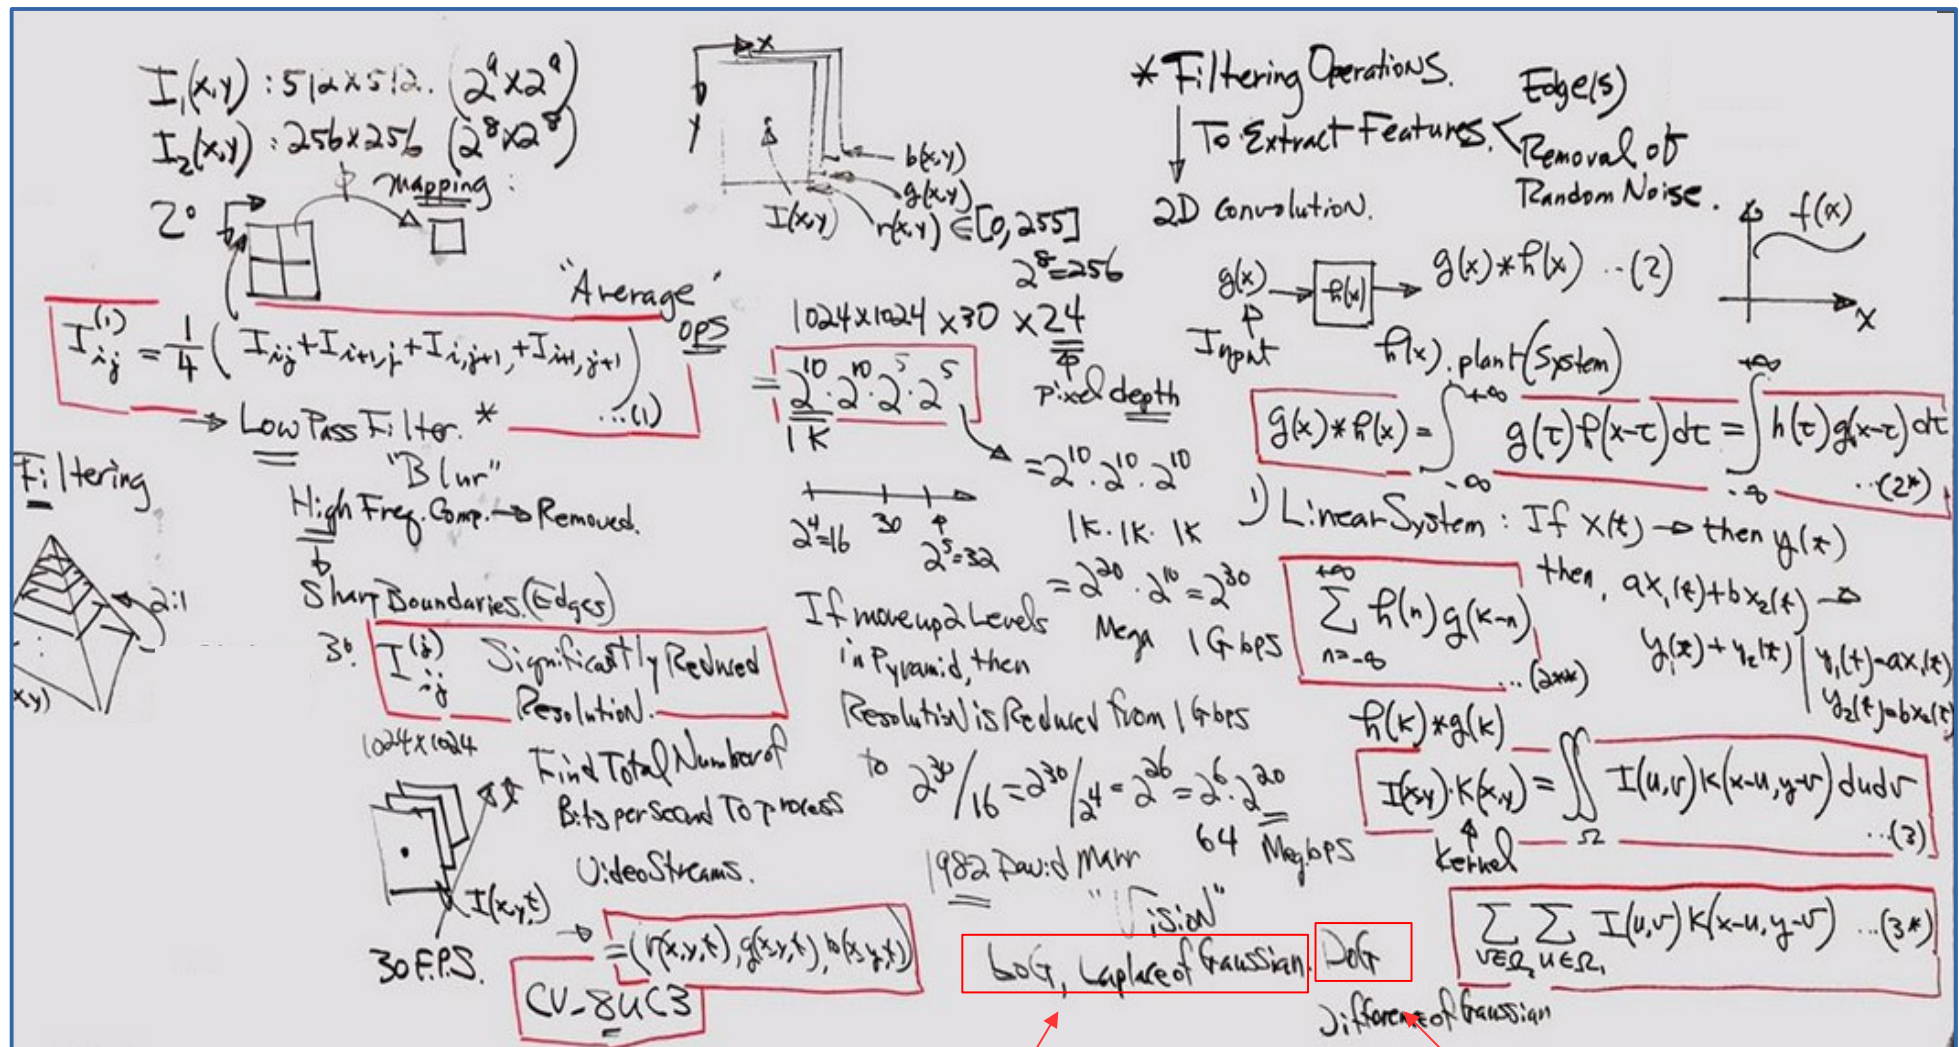 I₁(x,y) : 512×512. (2⁹×2⁹)
I₂(x,y) : 256×256 (2⁸×2⁸)
mapping :
2°
"Average"
I_ij^(1) = 1/4 ( I_ij + I_i+1,j + I_i,j+1, + I_i+1,j+1 ) ...(1)
→ Low Pass Filter. *
"Blur"
High Freq. Comp. → Removed.
Sharp Boundaries. (Edges)
Filtering
2:1
x,y)
3°. I_ij^(j) Significantly Reduced
Resolution.
1024×1024
Find Total Number of
Bits per Second To process
Video Streams.
t
I(x,y,t)
→ = (r(x,y,t), g(x,y,t), b(x,y,t))
30 F.P.S.
CV-8UC3
x
y
b(x,y)
g(x,y)
I(x,y) r(x,y) ∈ [0,255]
2⁸=256
OPS
1024×1024 ×30 × 24
= 2¹⁰·2¹⁰·2⁵·2⁵
pixel depth
1K
= 2¹⁰·2¹⁰·2¹⁰
1K·1K·1K
2⁴=16 30 2⁵=32
= 2²⁰·2¹⁰ = 2³⁰
Mega 1Gbps
If move up 2 Levels
in Pyramid, then
Resolution is Reduced from 1Gbps
to 2³⁰/16 = 2³⁰/2⁴ = 2²⁶ = 2⁶·2²⁰
64 Megbps
1982 David Marr
"Vision"
LoG, Laplace of Gaussian. DoG
Difference of Gaussian
* Filtering Operations.
To Extract Features.
Edge(s)
Removal of
Random Noise.
2D Convolution.
g(x) → h(x) → g(x)*h(x) ...(2)
Input
h(x). plant (System)
f(x)
x
g(x)*h(x) = ∫_-∞^+∞ g(τ)h(x-τ)dτ = ∫_-∞^+∞ h(τ)g(x-τ)dτ
...(2*)
1) Linear System : If x(t) → then y(t)
then, ax₁(t)+bx₂(t) →
y₁(t) + y₂(t) | y₁(t)=ax₁(t)
y₂(t)=bx₂(t)
+∞ ∑ n=-∞ h(n)g(k-n)
...(2**)
h(k)*g(k)
I(x,y)·K(x,y) = ∬_Ω I(u,v)K(x-u,y-v)dudv
...(3)
Kernel
∑_v∈Ω₂ ∑_u∈Ω₁ I(u,v)K(x-u,y-v) ...(3*)